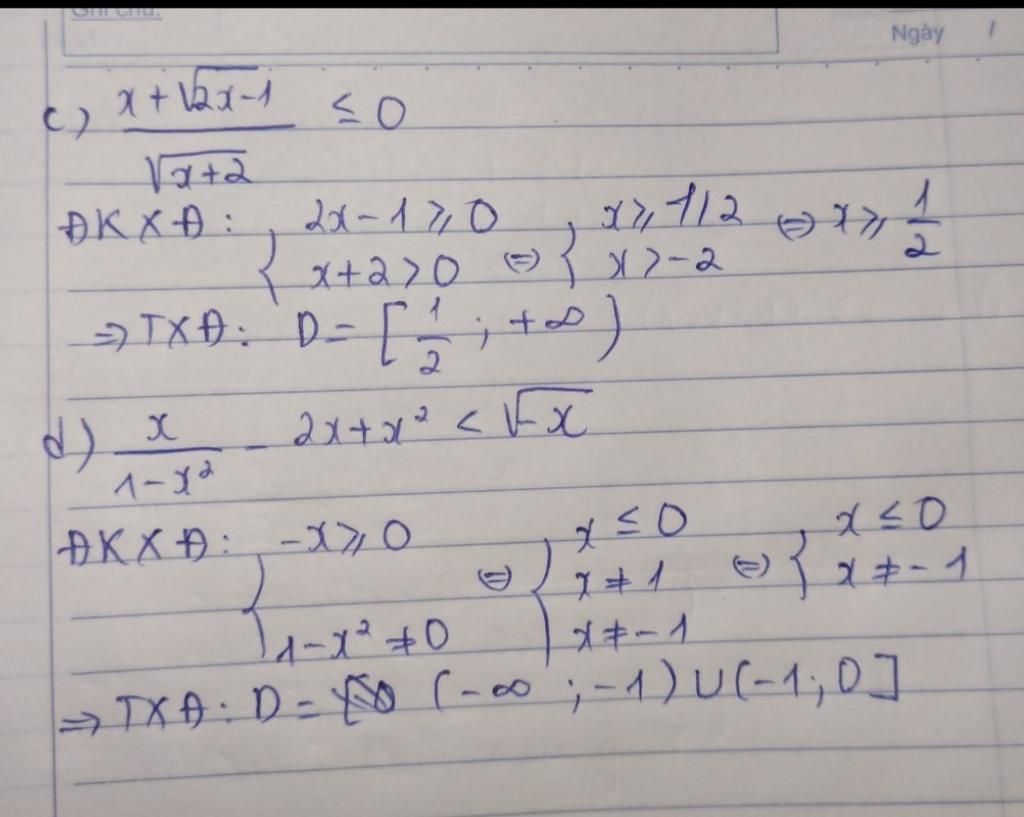 Ghi chú:
Ngày /
c) (x + √(2x-1)) / √(x+2) ≤ 0
ĐKXĐ: { 2x - 1 ≥ 0 ; x + 2 > 0 ⇔ { x ≥ 1/2 ; x > -2 ⇔ x ≥ 1/2
⇒ TXĐ: D = [1/2 ; +∞)
d) x / (1-x²) - 2x + x² < √-x
ĐKXĐ: { -x ≥ 0 ; 1 - x² ≠ 0 ⇔ { x ≤ 0 ; x ≠ 1 ; x ≠ -1 ⇔ { x ≤ 0 ; x ≠ -1
⇒ TXĐ: D = (-∞ ; -1) ∪ (-1 ; 0]